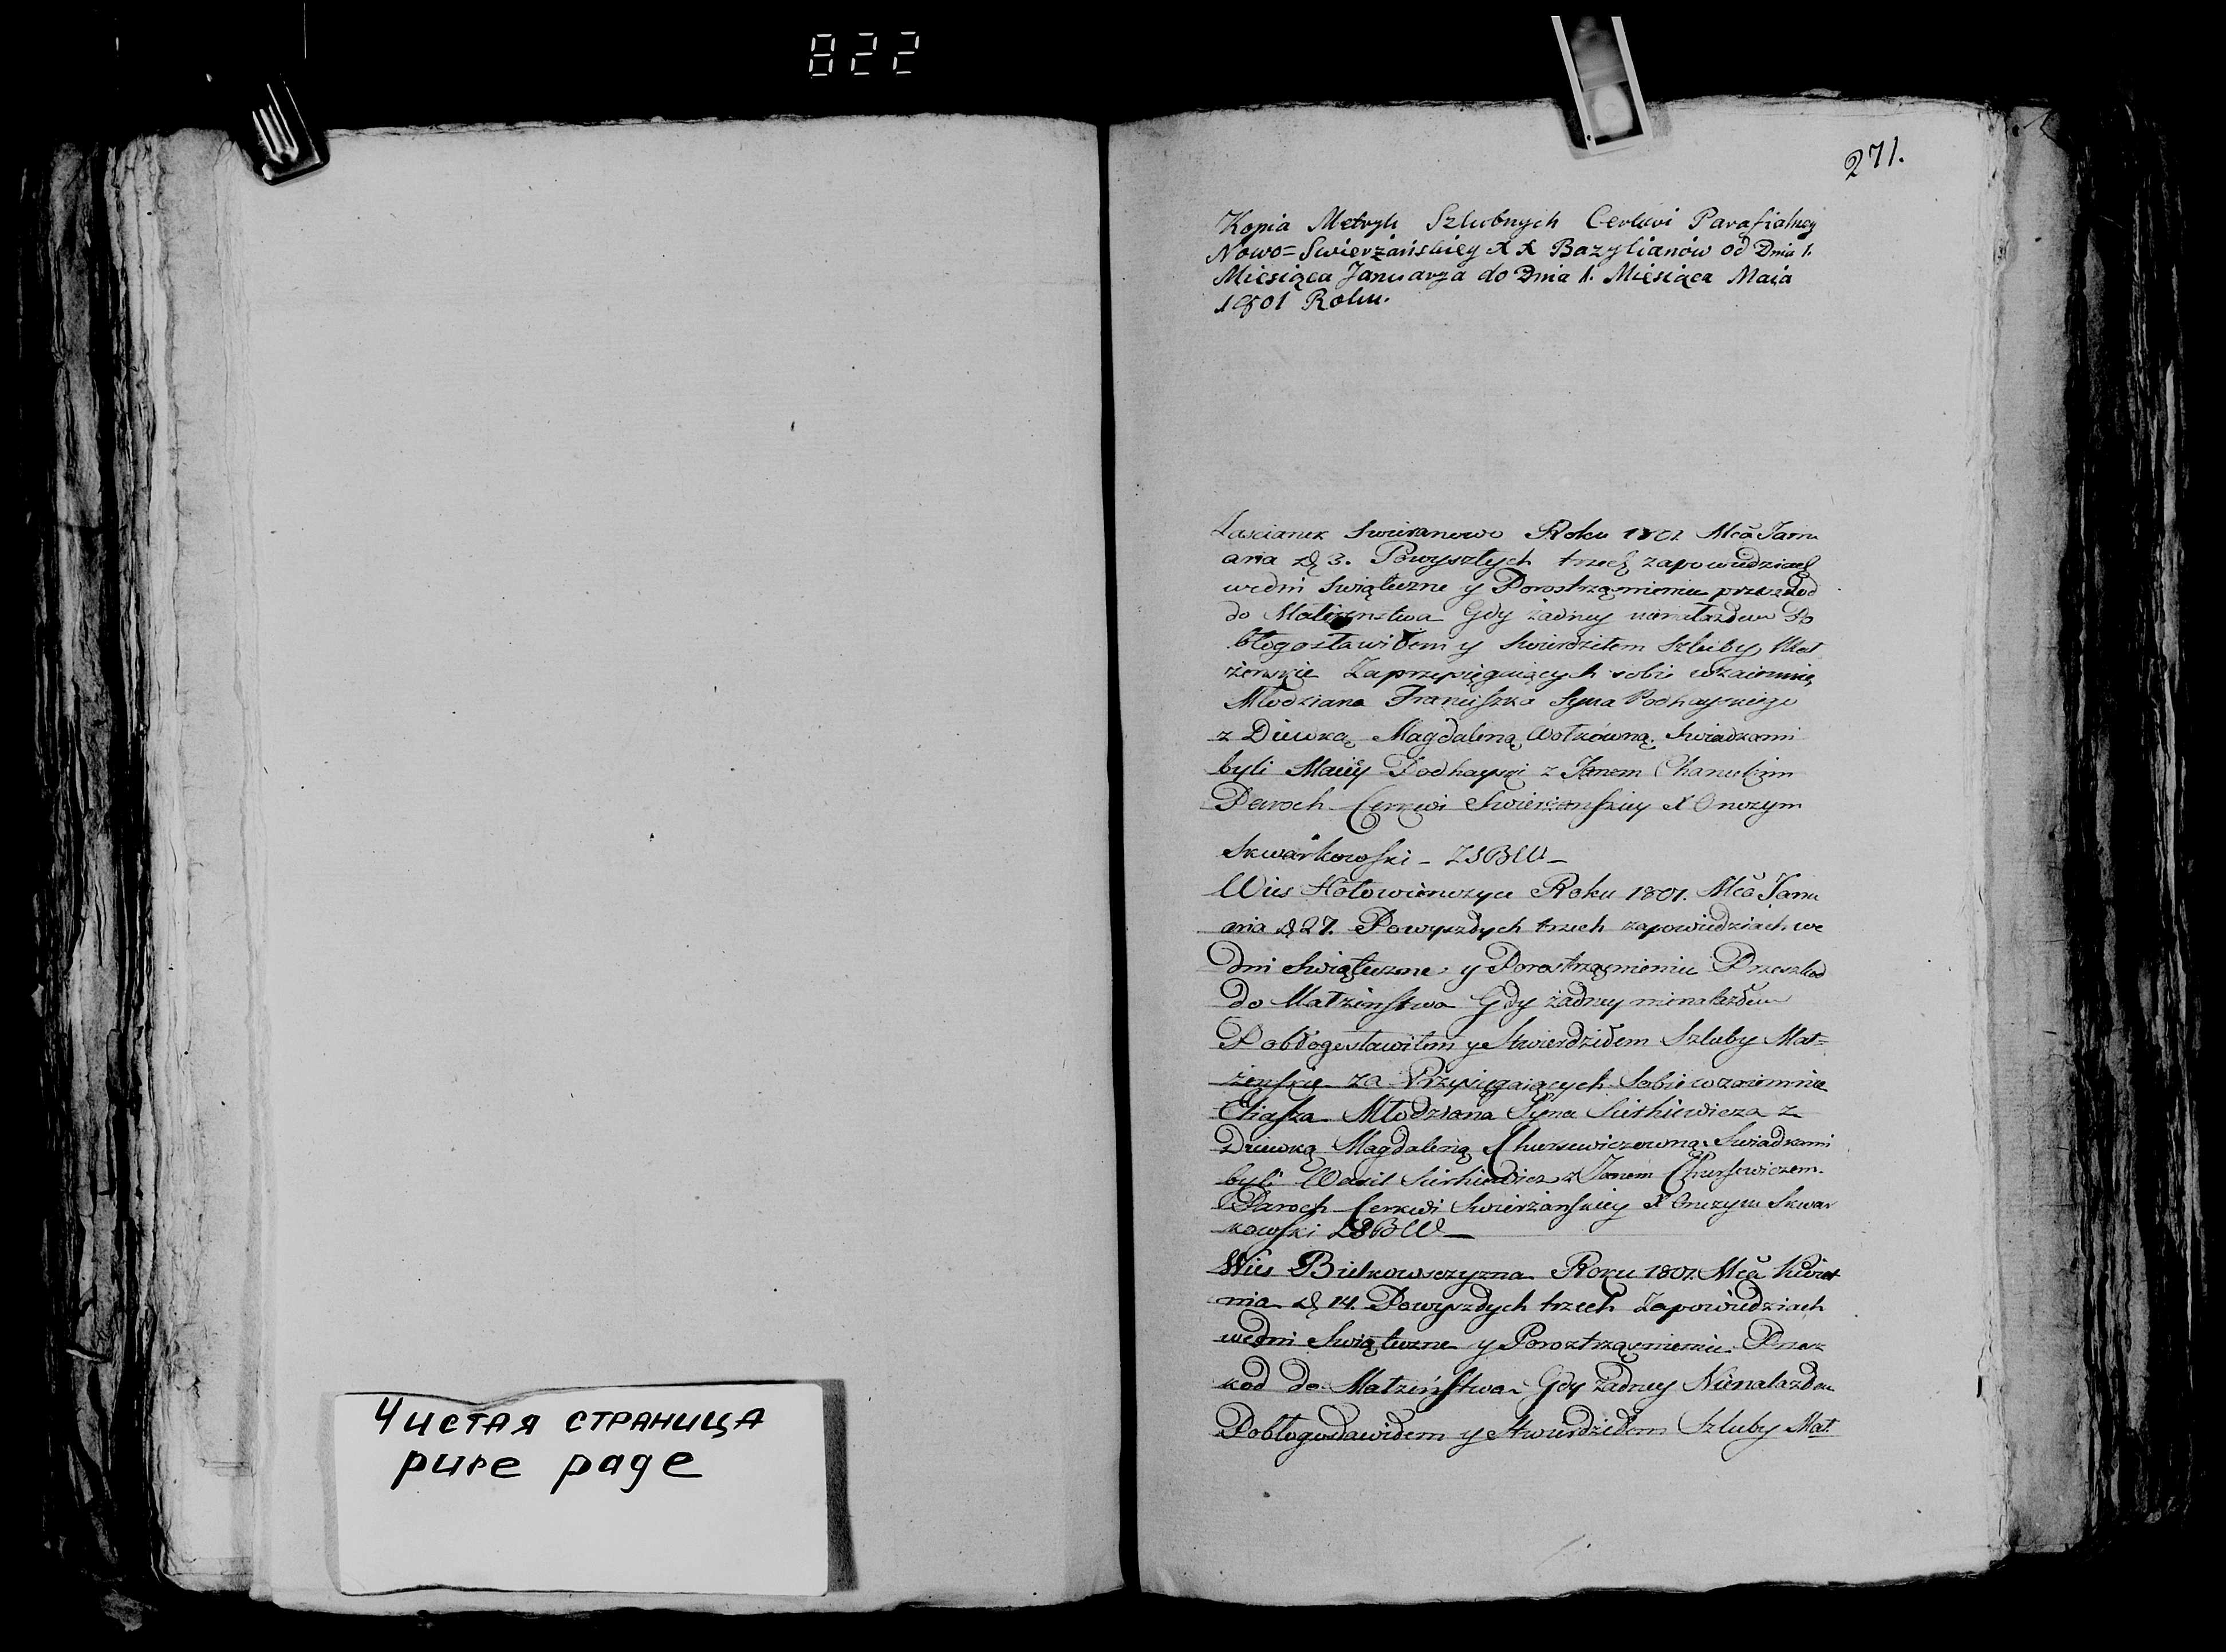 822
271.
Kopia Metryk Szlubnych Cerkwi Parafialney
Nowo=Swierżańskiey XX Bazylianów od Dnia 1.
Miesiąca Januarya do Dnia 1. Miesiąca Maia
1801 Roku.
Zascianek Roku 1801 Mca Janu
aria d 3. Powyszłych trzech zapowiedziach
wedni Swiąteczne y Porostrząsnieniu przeszkod
do Małżenstwa Gdy żadney nienalazłem Po
błogosławiłem y Stwierdziłem Szluby Mał
żenskie Zaprzysięgaiących sobie wzaiemnie
Młodziana Franciszka Syna Podhayskiego
z Diewką Magdaleną Wołkówną. Swiadkami
byli Maciey Podhayski z Janem
Paroch Cerkwi Swierżanskiey X Onczym
Skwarkowski _ ZSBW _
Wies Hołowienczyce Roku 1801. Mca Janu
aria d 27. Powyszłych trzech zapowiedziach we
dni Swiąteczne y Porostrząsnieniu Przeszkod
do Małżenstwa Gdy żadney nienalazłem
Pobłogosławiłem y Stwierdziłem Szluby Mał=
żenskie za Przysięgaiących Sobie wzaiemnie
Eliasza Młodziana Syna Sierhiewicza z
Dziewką Magdaleną Chursewiczowną. Swiadkami
byli Wasil Sierhiewicz z Janem Chursewiczem.
Paroch Cerkwi Swierżanskiey X Onczym Skwar
kowski ZSBW _
Wies Bielkowszczyzna Roku 1801. Mca Kwiet
nia d 14. Powyszłych trzech Zapowiedziach
wedni Swiąteczne y Poroztrząsnieniu Przesz
kod do Małżeństwa Gdy żadney Nienalazłem
Pobłogosławiłem y Stwierdziłem Szluby Mał.
Чистая страница
pure page